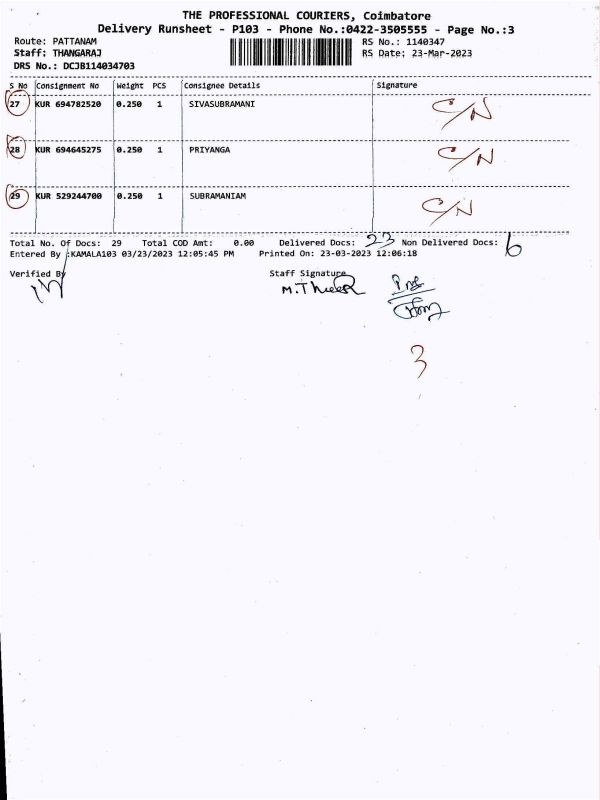 THE PROFESSIONAL COURIERS, Coimbatore
Delivery Runsheet - P103 - Phone No.:0422-3505555 - Page No.:3
Route: PATTANAM RS No.: 1140347
Staff: THANGARAJ RS Date: 23-Mar-2023
DRS No.: DCJB114034703
S No Consignment No Weight PCS Consignee Details Signature
27 KUR 694782520 0.250 1 SIVASUBRAMANI C/N
28 KUR 694645275 0.250 1 PRIYANGA C/N
29 KUR 529244700 0.250 1 SUBRAMANIAM C/N
Total No. Of Docs: 29 Total COD Amt: 0.00 Delivered Docs: 23 Non Delivered Docs: 6
Entered By :KAMALA103 03/23/2023 12:05:45 PM Printed On: 23-03-2023 12:06:18
Verified By Staff Signature
3